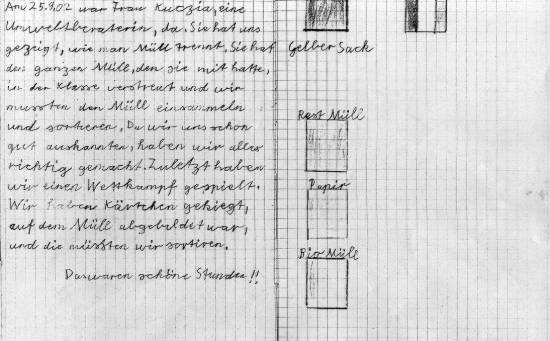 Am 25.9.02 war Frau Kuczia, eine
Umweltberaterin, da. Sie hat uns
gezeigt, wie man Müll trennt. Sie hat
den ganzen Müll, den sie mit hatte,
in der Klasse verstreut und wir
mussten den Müll einsammeln
und sortieren. Da wir uns schon
gut auskannten, haben wir alles
richtig gemacht. Zuletzt haben
wir einen Wettkampf gespielt.
Wir haben Kärtchen gekiegt,
auf dem Müll abgebildet war,
und die müssten wir sortiren.
Das waren schöne Stunden!!
Gelber Sack
Rest Müll
Papir
Bio Müll